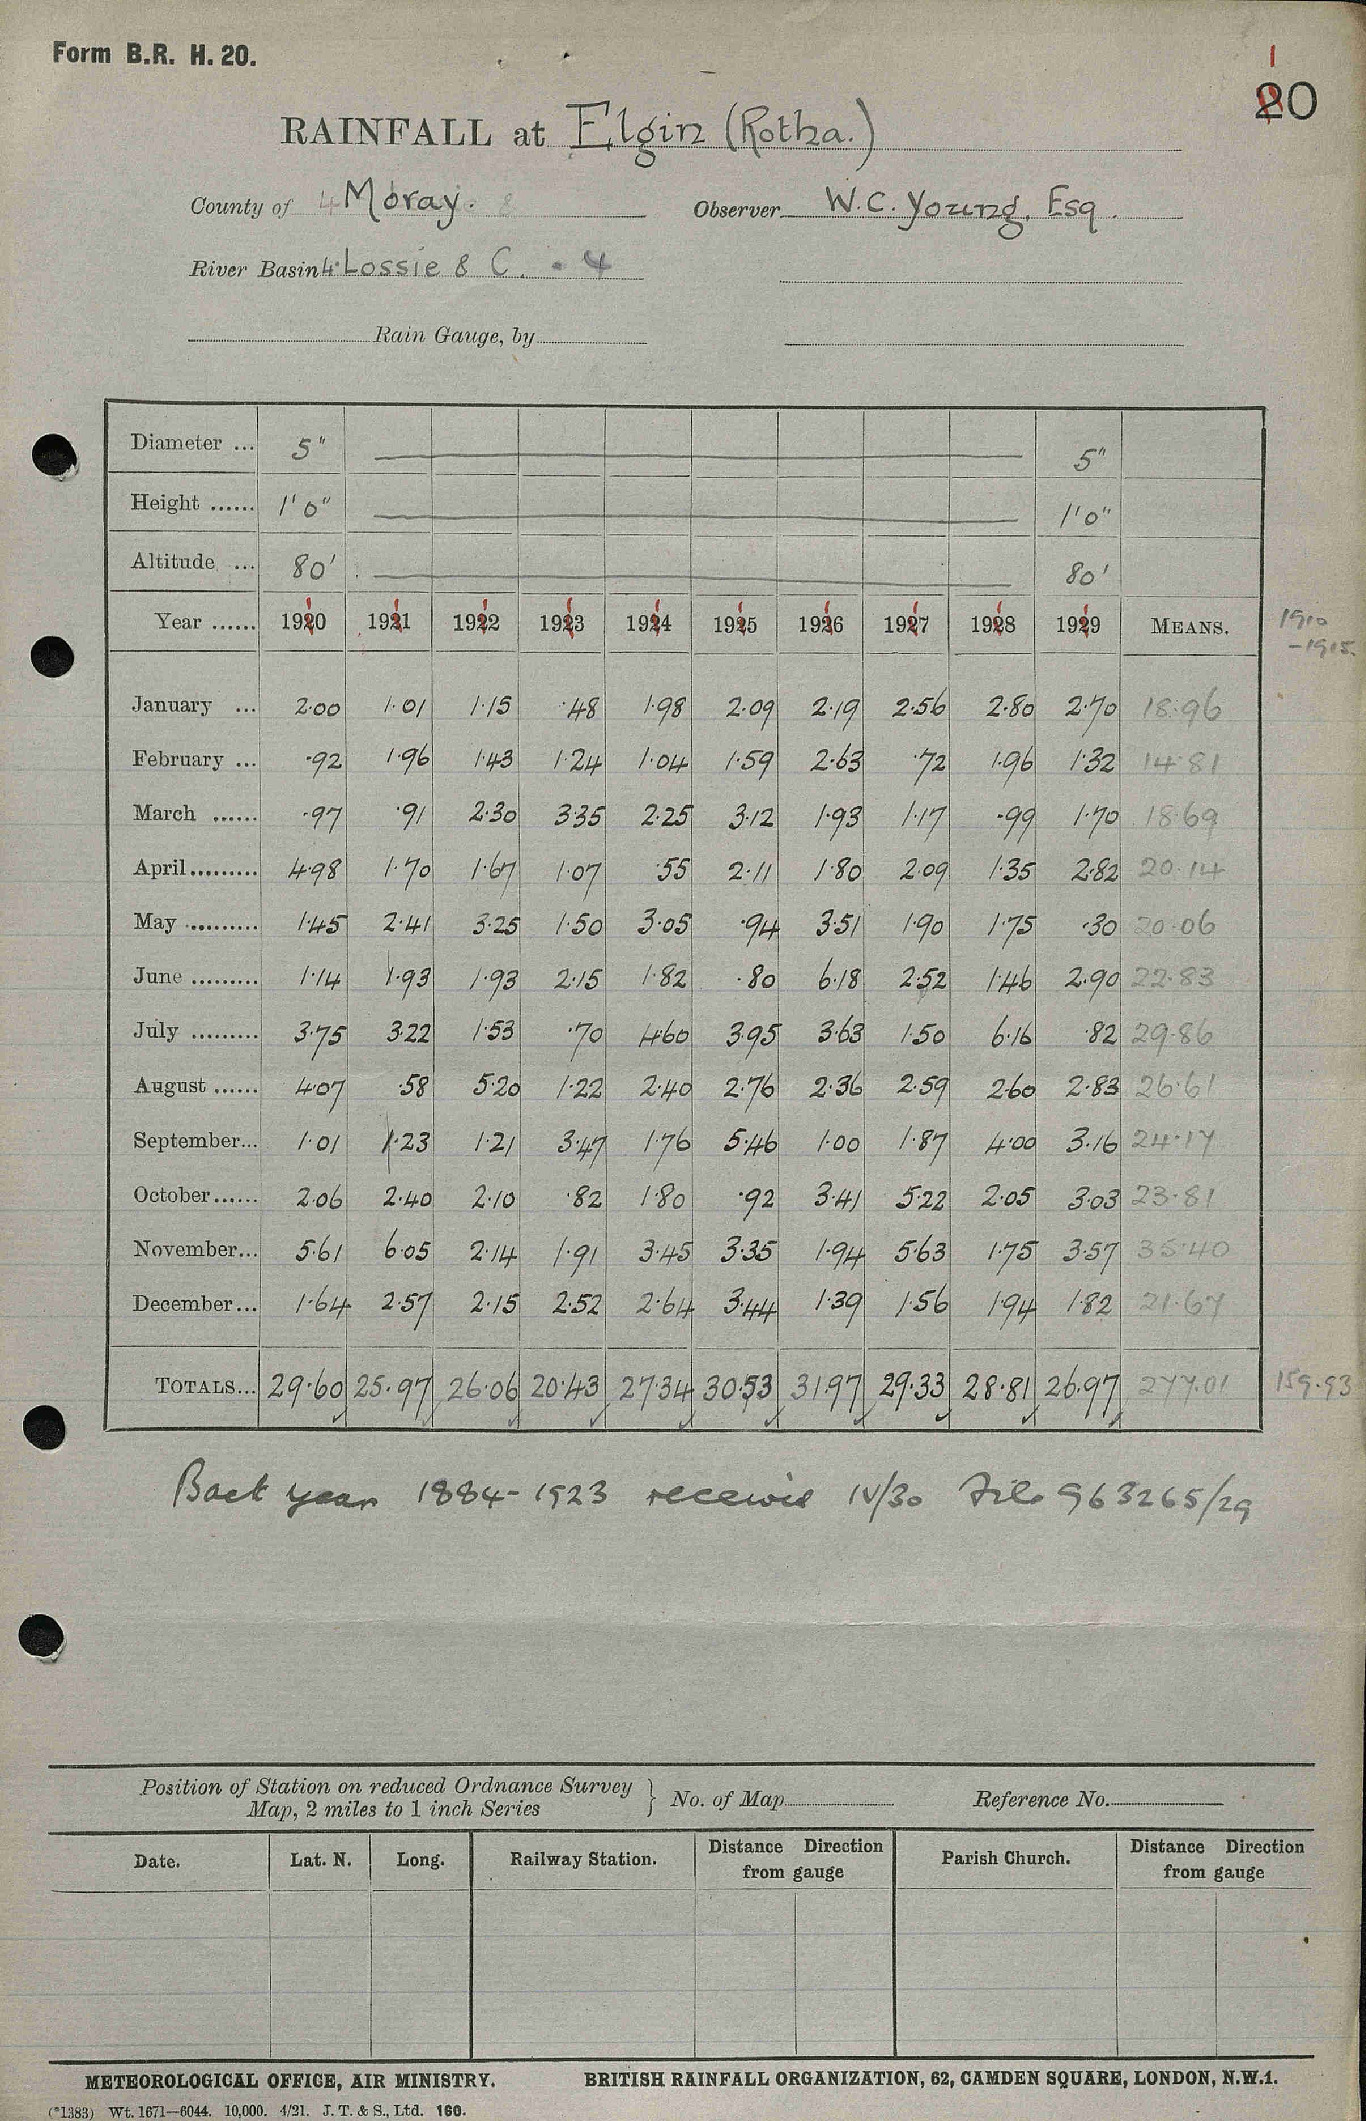 Form B.R. H. 20.
1
20
RAINFALL at Elgin (Rotha.)
County of 4 Moray. Observer W.C. Young, Esq.
River Basin 4. Lossie & C. . 4
Rain Gauge, by
Diameter ... 5" 5"
Height ...... 1'0" 1'0"
Altitude ... 80' 80'
Year ...... 1920 1921 1922 1923 1924 1925 1926 1927 1928 1929 MEANS. 1910
-1915.
January ... 2.00 1.01 1.15 .48 1.98 2.09 2.19 2.56 2.80 2.70 18.96
February ... .92 1.96 1.43 1.24 1.04 1.59 2.63 .72 1.96 1.32 14.81
March ...... .97 .91 2.30 3.35 2.25 3.12 1.93 1.17 .99 1.70 18.69
April ......... 4.98 1.70 1.67 1.07 .55 2.11 1.80 2.09 1.35 2.82 20.14
May .......... 1.45 2.41 3.25 1.50 3.05 .94 3.51 1.90 1.75 .30 20.06
June ......... 1.14 1.93 1.93 2.15 1.82 .80 6.18 2.52 1.46 2.90 22.83
July ......... 3.75 3.22 1.53 .70 4.60 3.95 3.63 1.50 6.16 .82 29.86
August ...... 4.07 .58 5.20 1.22 2.40 2.76 2.36 2.59 2.60 2.83 26.61
September... 1.01 1.23 1.21 3.47 1.76 5.46 1.00 1.87 4.00 3.16 24.17
October...... 2.06 2.40 2.10 .82 1.80 .92 3.41 5.22 2.05 3.03 23.81
November... 5.61 6.05 2.14 1.91 3.45 3.35 1.94 5.63 1.75 3.57 35.40
December... 1.64 2.57 2.15 2.52 2.64 3.44 1.39 1.56 1.94 1.82 21.67
TOTALS... 29.60 25.97 26.06 20.43 27.34 30.53 31.97 29.33 28.81 26.97 277.01 159.93
Back years 1884-1923 received IV/30 File 963265/29
Position of Station on reduced Ordnance Survey
Map, 2 miles to 1 inch Series } No. of Map Reference No.
Date. Lat. N. Long. Railway Station. Distance Direction from gauge Parish Church. Distance Direction from gauge
METEOROLOGICAL OFFICE, AIR MINISTRY. BRITISH RAINFALL ORGANIZATION, 62, CAMDEN SQUARE, LONDON, N.W.1.
(*1383) Wt. 1671—6044. 10,000. 4/21. J. T. & S., Ltd. 160.